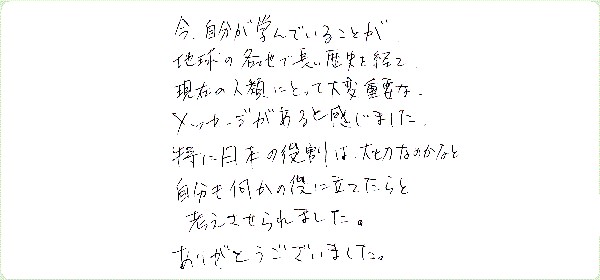 今、自分が学んでいることが
地球の各地で長い歴史を経て、
現在の人類にとって大変重要な、
メッセージがあると感じました。
特に日本の役割は、大切なのかなと
自分も何かの役に立てたらと
考えさせられました。
ありがとうございました。